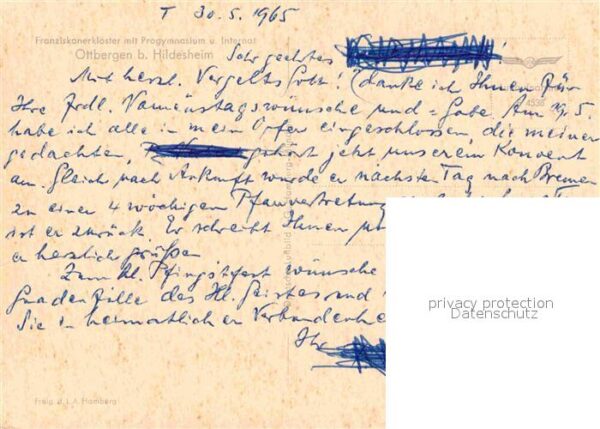 T 30.5.1965
Franziskanerklöster mit Progymnasium u. Internat
Ottbergen b. Hildesheim
Sehr geehrtes
Mit herzl. Vergelts Gott! danke ich Ihnen für
Ihre frdl. Namenstagswünsche und = Gabe. Am 19.5.
habe ich alle in mein Opfer eingeschlossen, die meiner
gedachten, gehört jetzt unserem Konvent
an. Gleich nach Ankunft wurde er nächsten Tag nach Bremen
zu einer 4 wöchigen Pfarrvertretung
ist er zurück. Er schreibt Ihnen
er herzlich grüßen
Zum hl. Pfingstfest wünsche
Gnadenfülle des Hl. Geistes und
Sie in heimatlicher Verbundenhe
Ihr
Freig. d. L.A. Hamburg
privacy protection
Datenschutz